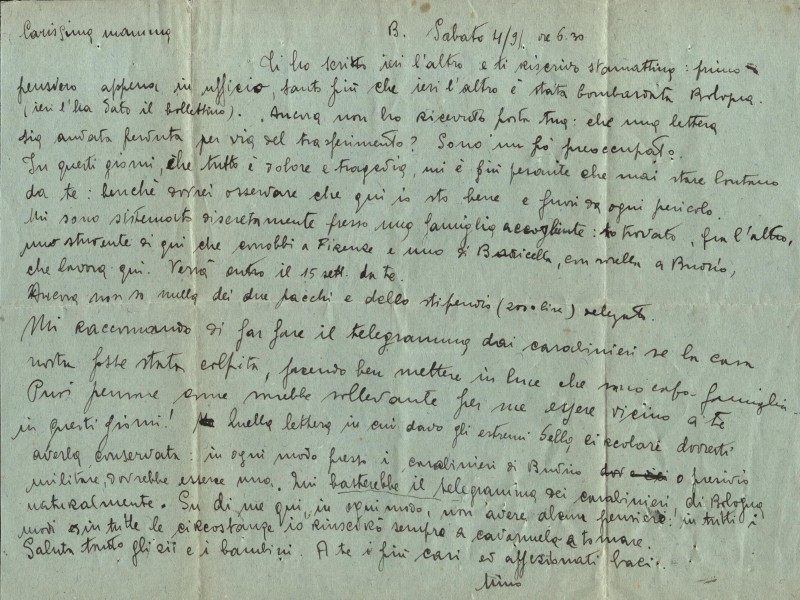 Carissima mamma
B. Sabato 4/9/ ore 6.30
Ti ho scritto ieri l'altro e ti riscrivo stamattina: primo
pensiero appena in ufficio, tanto più che ieri l'altro è stata bombardata Bologna.
(ieri l'ha dato il bollettino). Ancora non ho ricevuto posta tua: che una lettera
sia andata perduta per via del trasferimento? Sono un pò preoccupato.
In questi giorni, che tutto è dolore e tragedia, mi è più pesante che mai stare lontano
da te: benchè dovrei osservare che qui io sto bene e fuori da ogni pericolo.
Mi sono sistemato discretamente presso una famiglia accogliente: ho trovato, fra l'altro,
uno studente di qui che conobbi a Firenze e uno di Baricella, con sorella a Budrio,
che lavora qui. Verrà entro il 15 sett. da te.
Ancora non so nulla dei due pacchi e dello stipendio (200 lire) delegato.
Mi raccomando di far fare il telegramma dai carabinieri se la casa
nostra fosse stata colpita, facendo ben mettere in luce che sono capo-famiglia.
Puoi pensare come sarebbe sollevante per me essere vicino a te
in questi giorni! Quella lettera in cui davo gli estremi della circolare dovresti
averla conservata: in ogni modo presso i carabinieri di Budrio o presidio
militare, dovrebbe esserne una. Mi basterebbe il telegramma dei carabinieri di Bologna
naturalmente. Su di me qui, in ogni modo, non avere alcun pensiero: in tutti i
modi e in tutte le circostanze io riuscirò sempre a cavarmela e a tornare.
Saluta tanto gli zii e i bambini. A te i più cari ed affezionati baci.
Nino